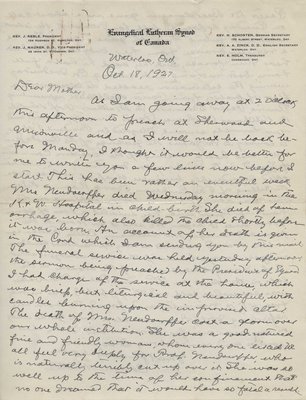 Evangelical Lutheran Synod
of Canada
REV. J. REBLE, PRESIDENT
REV. J. MAURER, D.D., VICE-PRESIDENT
REV. H. SCHORTEN, GERMAN SECRETARY
REV. A. A. ZINCK, D.D., ENGLISH SECRETARY
WATERLOO, ONT.
REV. E. HOLM, TREASURER
Waterloo, Ont
Oct 18, 1927.
Dear Mother
As I am going away at 2 o'clock
this afternoon to preach at Sherwood and
and as I will not be back be-
fore Monday, I thought it would be better for
me to write you a few lines now before I
start. This has been rather an eventful week
Mrs Neudoerffer died Wednesday morning in the
K & W Hospital in child birth. She died of hem-
orrhage, which also killed the child shortly before
it was born. An account of her death is given
in the Cord which I am sending you by this mail
The funeral service was held yesterday afternoon
the sermon being preached by the President of Synod
I had charge of the service at the house, which
was brief but liturgical and beautiful, with
candles burning upon the improvised altar
The death of Mrs. Neudoerffer cast a gloom over
our whole institution. She was a good natured
fine and friendly woman whom every one liked. We
all feel very deeply for Prof. Neudoerffer who
is naturally terribly cut up over it. She was so
well up to the time of her confinement that
no one dreamed that it would have so fatal a result